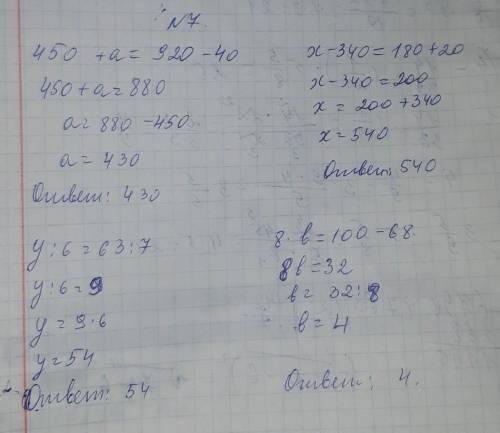 N7.
450 + a = 920 - 40
450 + a = 880
a = 880 - 450
a = 430
Ответ: 430
x - 340 = 180 + 20
x - 340 = 200
x = 200 + 340
x = 540
Ответ: 540
y : 6 = 63 : 7
y : 6 = 9
y = 9 · 6
y = 54
Ответ: 54
8 · b = 100 - 68.
8b = 32
b = 32 : 8
b = 4
Ответ: 4.